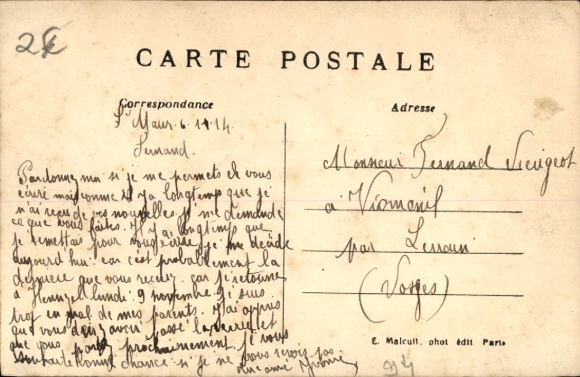 2€
CARTE POSTALE
Correspondance
Adresse
St Maur 6.11.14
Fernand.
Pardonnez moi si je me permets de vous
écrire mais comme il y a longtemp que je
n'ai reçu de vos nouvelles je me demande
ce que vous faites. Il y a longtemp que
je remettais pour vous écrire, je me décide
aujourd'hui car c'est probablement la
dernière que vous recevez car je retourne
à Hennezel lundi 9 novembre. je suis
trop en mal de mes parents. J'ai appris
que vous avez passé la et
que vous prochainement je vous
souhaite bonne chance si je ne vous revois pas
Yvonne
Monsieur Fernand
à Vioménil
par Lerrain
(Vosges)
E. Malcuit, phot édit Paris
94